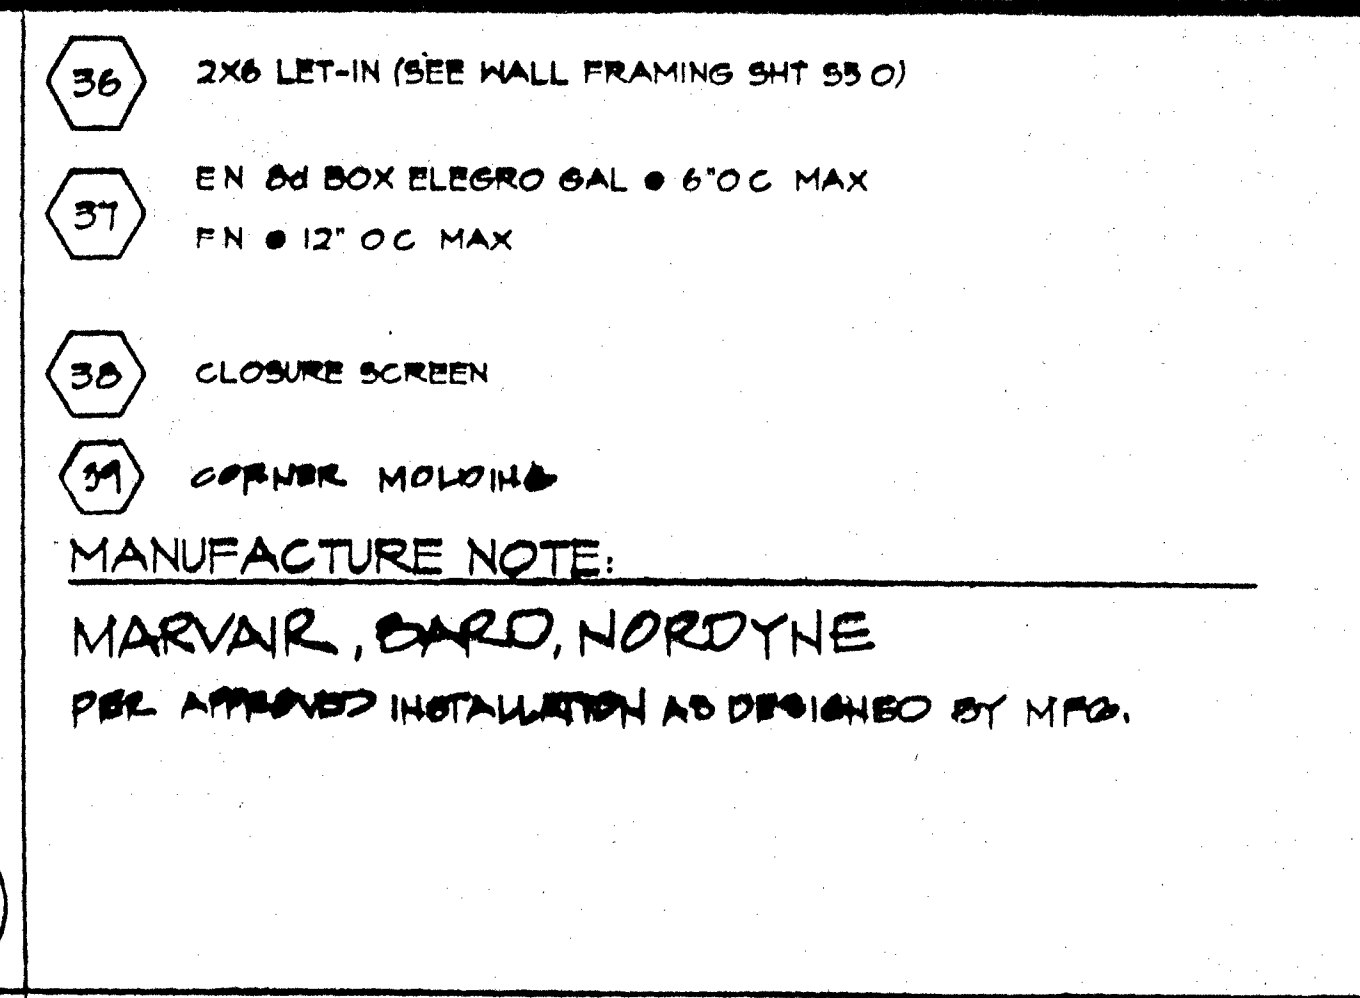 36 2X6 LET-IN (SEE WALL FRAMING SHT S3 0)
37 EN 8d BOX ELEGRO GAL @ 6" OC MAX
FN @ 12" OC MAX
38 CLOSURE SCREEN
39 CORNER MOLDING
MANUFACTURE NOTE:
MARVAIR, BARD, NORDYNE
PER APPROVED INSTALLATION AS DESIGNED BY MFG.